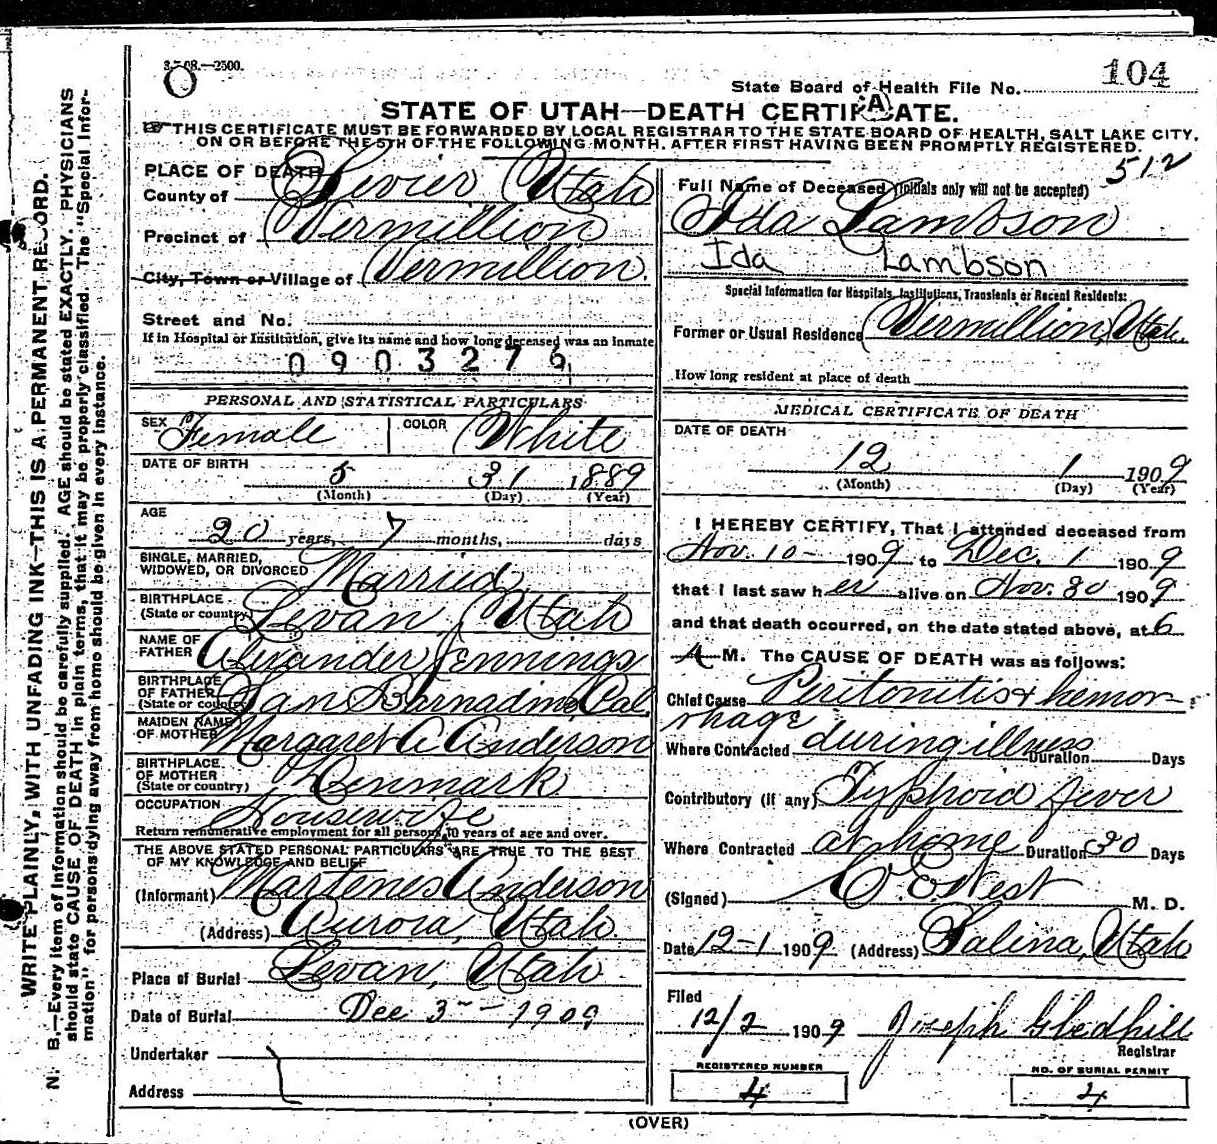 3-7-08.—2500.
State Board of Health File No. 104
STATE OF UTAH—DEATH CERTIFICATE.
A
THIS CERTIFICATE MUST BE FORWARDED BY LOCAL REGISTRAR TO THE STATE BOARD OF HEALTH, SALT LAKE CITY,
ON OR BEFORE THE 5TH OF THE FOLLOWING MONTH, AFTER FIRST HAVING BEEN PROMPTLY REGISTERED.
512
WRITE PLAINLY, WITH UNFADING INK—THIS IS A PERMANENT RECORD.
N. B.—Every item of information should be carefully supplied. AGE should be stated EXACTLY. PHYSICIANS
should state CAUSE OF DEATH in plain terms, that it may be properly classified. The "Special Infor-
mation" for persons dying away from home should be given in every instance.
PLACE OF DEATH
County of Sevier Utah
Precinct of Vermillion
City, Town or Village of Vermillion.
Street and No.
If in Hospital or Institution, give its name and how long deceased was an inmate
0903276
PERSONAL AND STATISTICAL PARTICULARS
SEX Female COLOR White
DATE OF BIRTH 5 31 1889
(Month) (Day) (Year)
AGE
20 years, 7 months, days
SINGLE, MARRIED,
WIDOWED, OR DIVORCED Married
BIRTHPLACE
(State or country) Levan Utah
NAME OF
FATHER Alexander Jennings
BIRTHPLACE
OF FATHER
(State or country) San Barnadino Cal
MAIDEN NAME
OF MOTHER Margaret A Anderson
BIRTHPLACE
OF MOTHER
(State or country) Denmark
OCCUPATION Housewife
Return remunerative employment for all persons 10 years of age and over.
THE ABOVE STATED PERSONAL PARTICULARS ARE TRUE TO THE BEST
OF MY KNOWLEDGE AND BELIEF
(Informant) Martenes Anderson
(Address) Aurora, Utah.
Place of Burial Levan, Utah
Date of Burial Dec 3 - 1909
Undertaker
Address
Full Name of Deceased (Initials only will not be accepted)
Ida Lambson
Ida Lambson
Special Information for Hospitals, Institutions, Transients or Recent Residents:
Former or Usual Residence Vermillion, Utah.
How long resident at place of death
MEDICAL CERTIFICATE OF DEATH
DATE OF DEATH
12 1 1909
(Month) (Day) (Year)
I HEREBY CERTIFY, That I attended deceased from
Nov. 10 - 1909 to Dec. 1 1909
that I last saw her alive on Nov. 30 1909
and that death occurred, on the date stated above, at 6
A M. The CAUSE OF DEATH was as follows:
Chief Cause Peritonitis & hemor-
rhage
Where Contracted during illness Duration Days
Contributory (if any) Typhoid fever
Where Contracted at home Duration 30 Days
(Signed) C E West M. D.
Date 12-1 1909 (Address) Salina, Utah
Filed
12/2 1909 Joseph Gledhill
Registrar
REGISTERED NUMBER
4
NO. OF BURIAL PERMIT
4
(OVER)